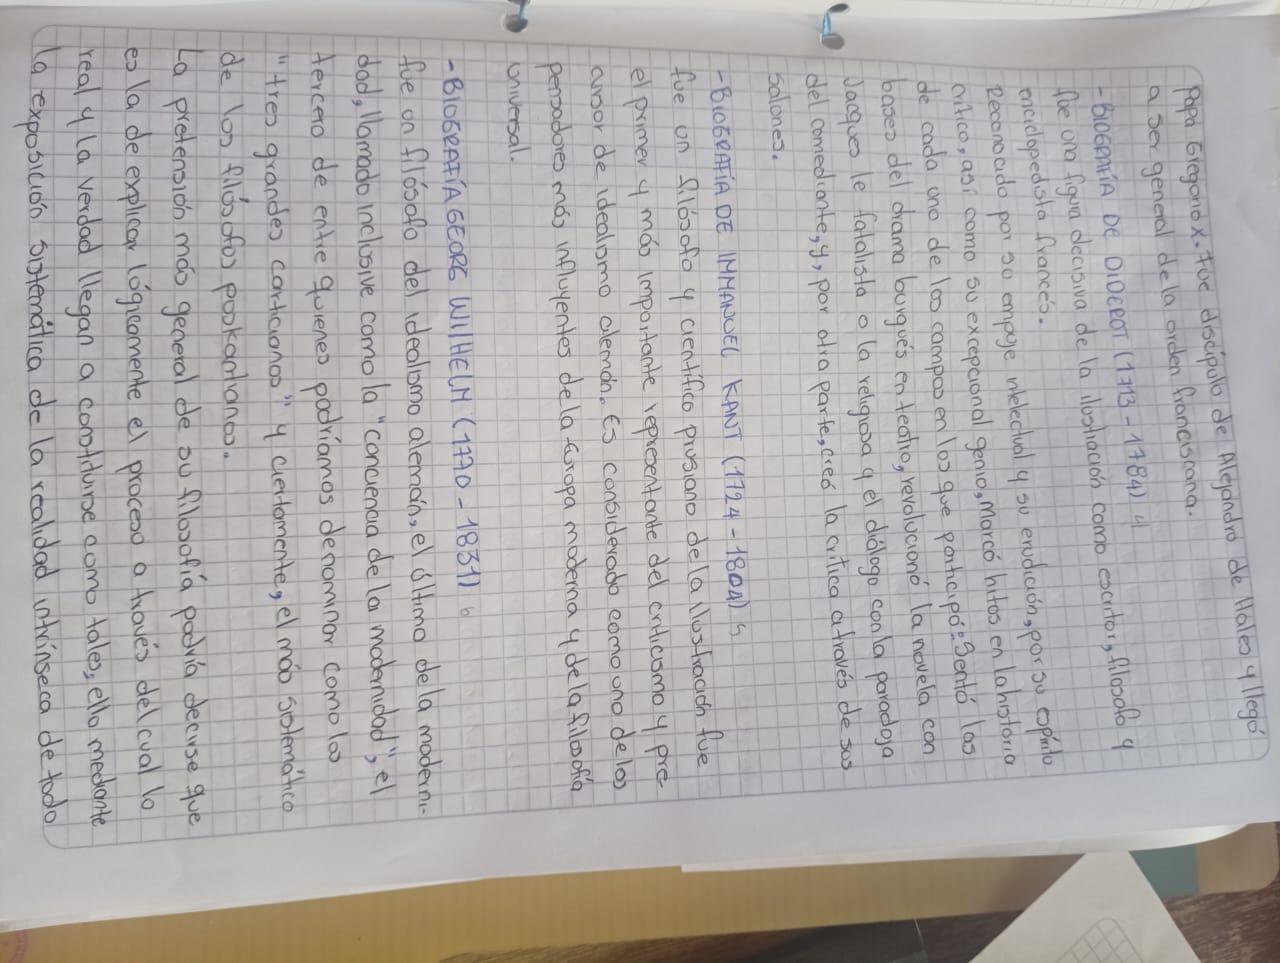 Papa Gregorio X. fue discípulo de Alejandro de Hales y llegó
a ser general de la orden franciscana.
-BIOGRAFÍA DE DIDEROT (1713-1784) 4
fue una figura decisiva de la ilustración como escritor, filosofo y
enciclopedista francés.
Reconocido por su empuje intelectual y su erudición, por su espíritu
crítico, así como su excepcional genio, Marcó hitos en la historia
de cada uno de los campos en los que participó: Sentó las
bases del drama burgués en teatro, revolucionó la novela con
Jacques le fatalista o la religiosa y el diálogo con la paradoja
del comediante, y, por otra parte, creó la crítica a través de sus
salones.
-BIOGRAFÍA DE IMMANUEL KANT (1724-1804) 5
fue un filósofo y científico prusiano de la ilustración fue
el primer y más importante representante del criticismo y pre
cursor de idealismo alemán. Es considerado como uno de los
pensadores más influyentes de la Europa moderna y de la filosofía
universal.
-BIOGRAFÍA GEORG WILHELM (1770-1831) 6
fue un filósofo del idealismo alemán, el último de la moderni-
dad, llamado inclusive como la "conciencia de la modernidad", el
tercero de entre quienes podríamos denominar como los
"tres grandes carticianos" y ciertamente, el más sistemático
de los filósofos poskantianos.
La pretensión más general de su filosofía podría decirse que
es la de explicar lógicamente el proceso a través del cual lo
real y la verdad llegan a constituirse como tales, ello mediante
la exposición sistemática de la realidad intrínseca de todo